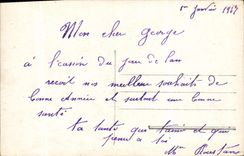 1er Janvier 1917
Mon cher George
à l'casion du jour de l'an
recoit nos meilleur souhait de
bonne Année et surtout une bonne
santé
ta tante qui t'aime et qui
pense a toi
Mme